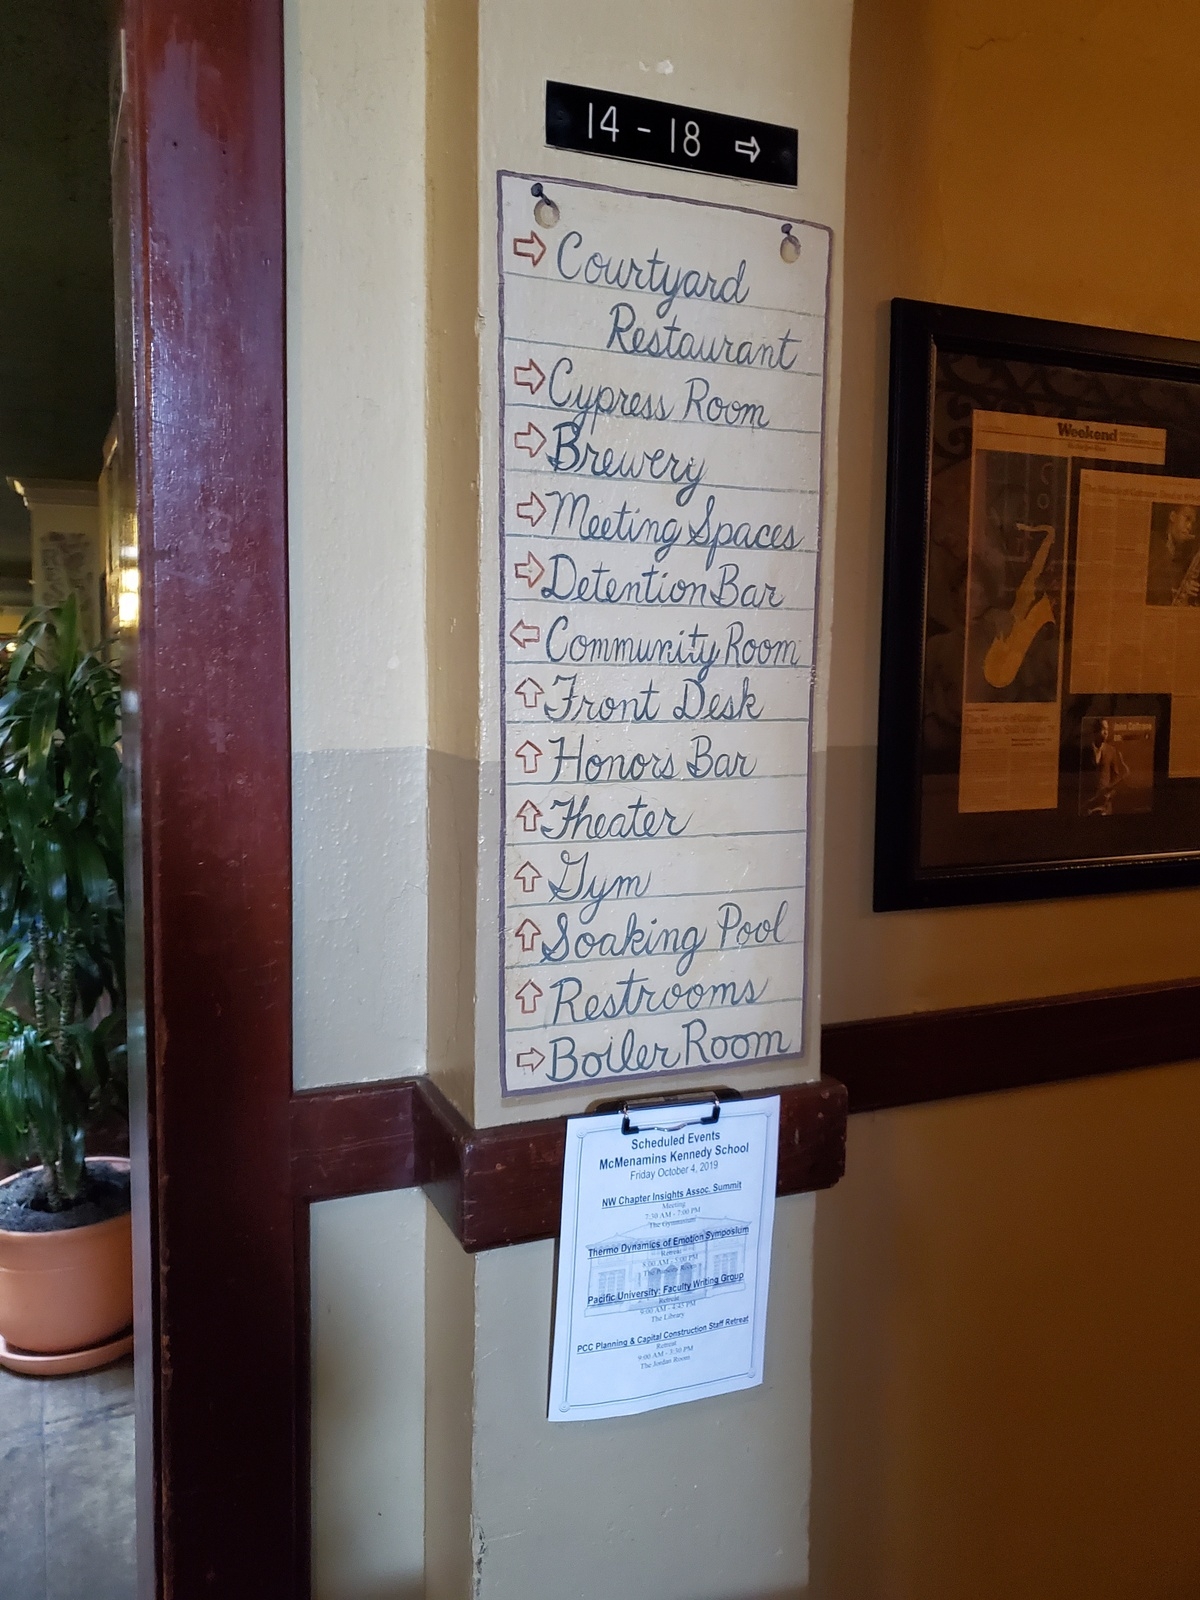 14 - 18 ⇨
⇨ Courtyard
Restaurant
⇨ Cypress Room
⇨ Brewery
⇨ Meeting Spaces
⇨ Detention Bar
⇦ Community Room
⇧ Front Desk
⇧ Honors Bar
⇧ Theater
⇧ Gym
⇧ Soaking Pool
⇧ Restrooms
⇨ Boiler Room
Scheduled Events
McMenamins Kennedy School
Friday October 4, 2019
NW Chapter Insights Assoc. Summit
Meeting
7:30 AM - 7:00 PM
The Gymnasium
Thermo Dynamics of Emotion Symposium
Retreat
8:00 AM - 5:00 PM
The Room
Pacific University: Faculty Writing Group
Retreat
9:00 AM - 4:45 PM
The Library
PCC Planning & Capital Construction Staff Retreat
Retreat
9:00 AM - 3:30 PM
The Jordan Room
Weekend
John Coltrane